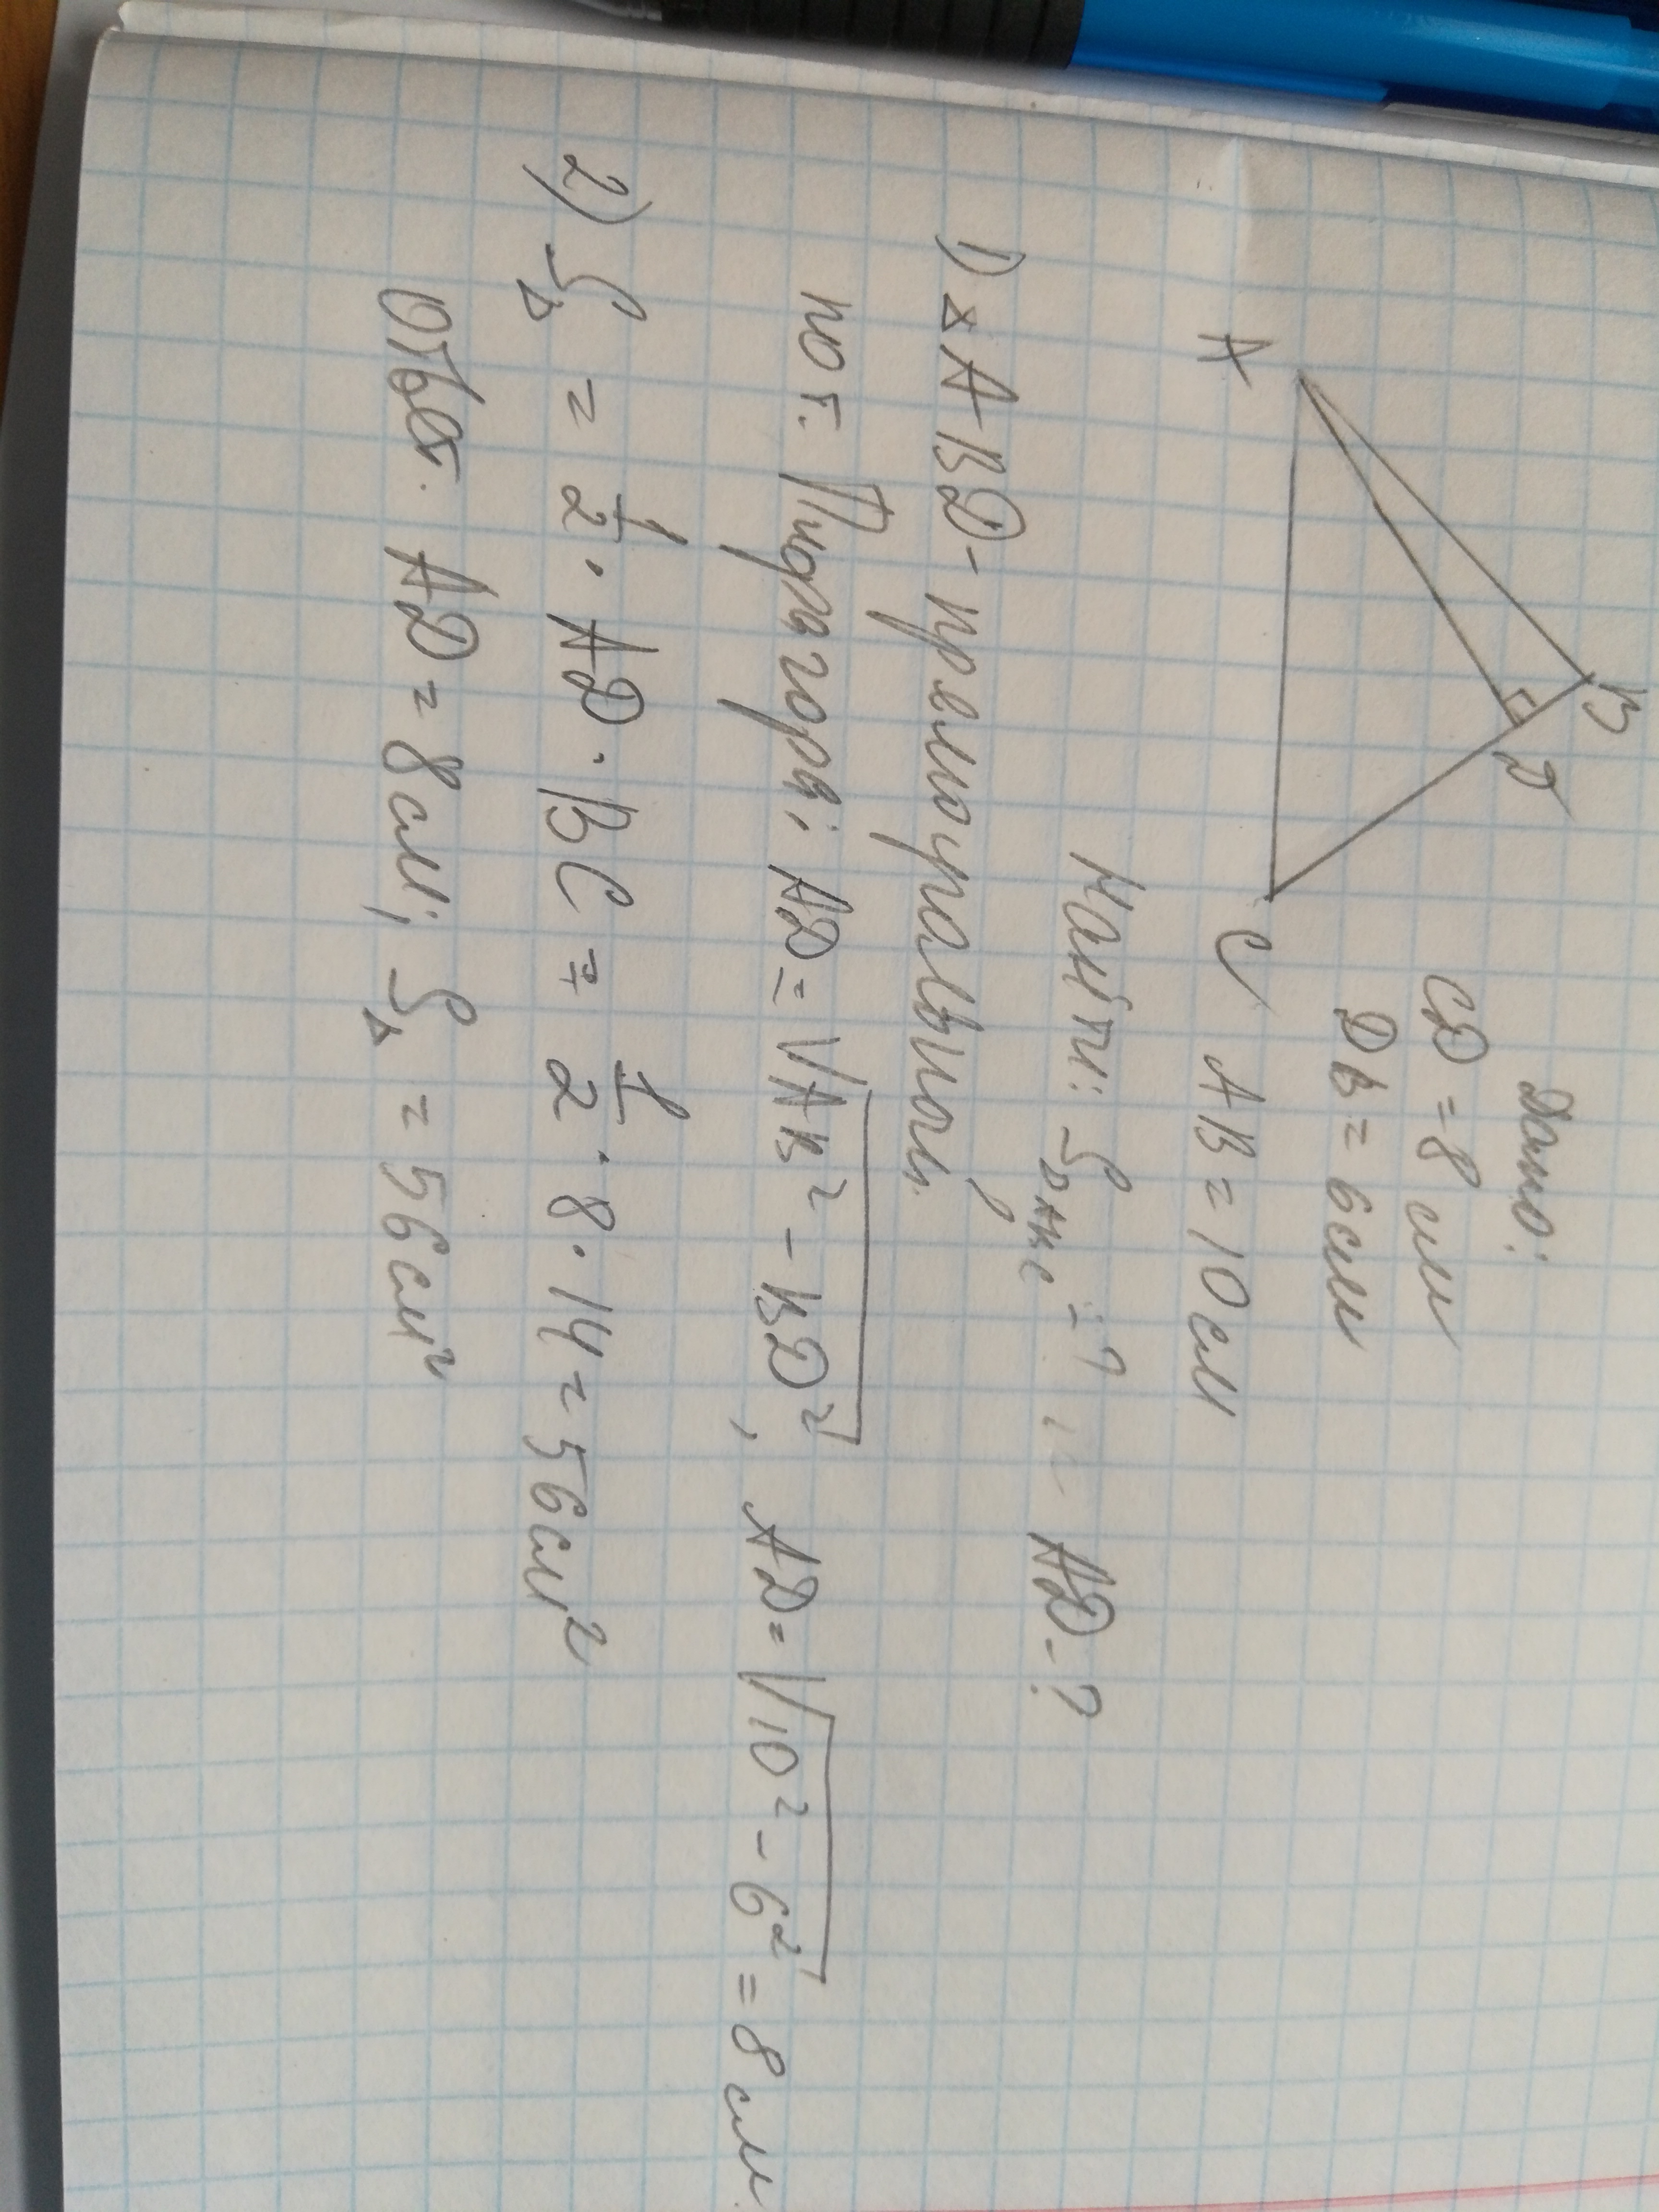 Дано:
B
D
CD = 8 см
DB = 6 см
A
C
AB = 10 см
Найти: S = ? AD - ?
1) ABD - прямоугольный.
по т. Пифагора: AD = √AB² - BD², AD = √10² - 6² = 8 см.
2) S△ = 1/2 · AD · BC = 1/2 · 8 · 14 = 56 см²
Ответ. AD = 8 см; S△ = 56 см²